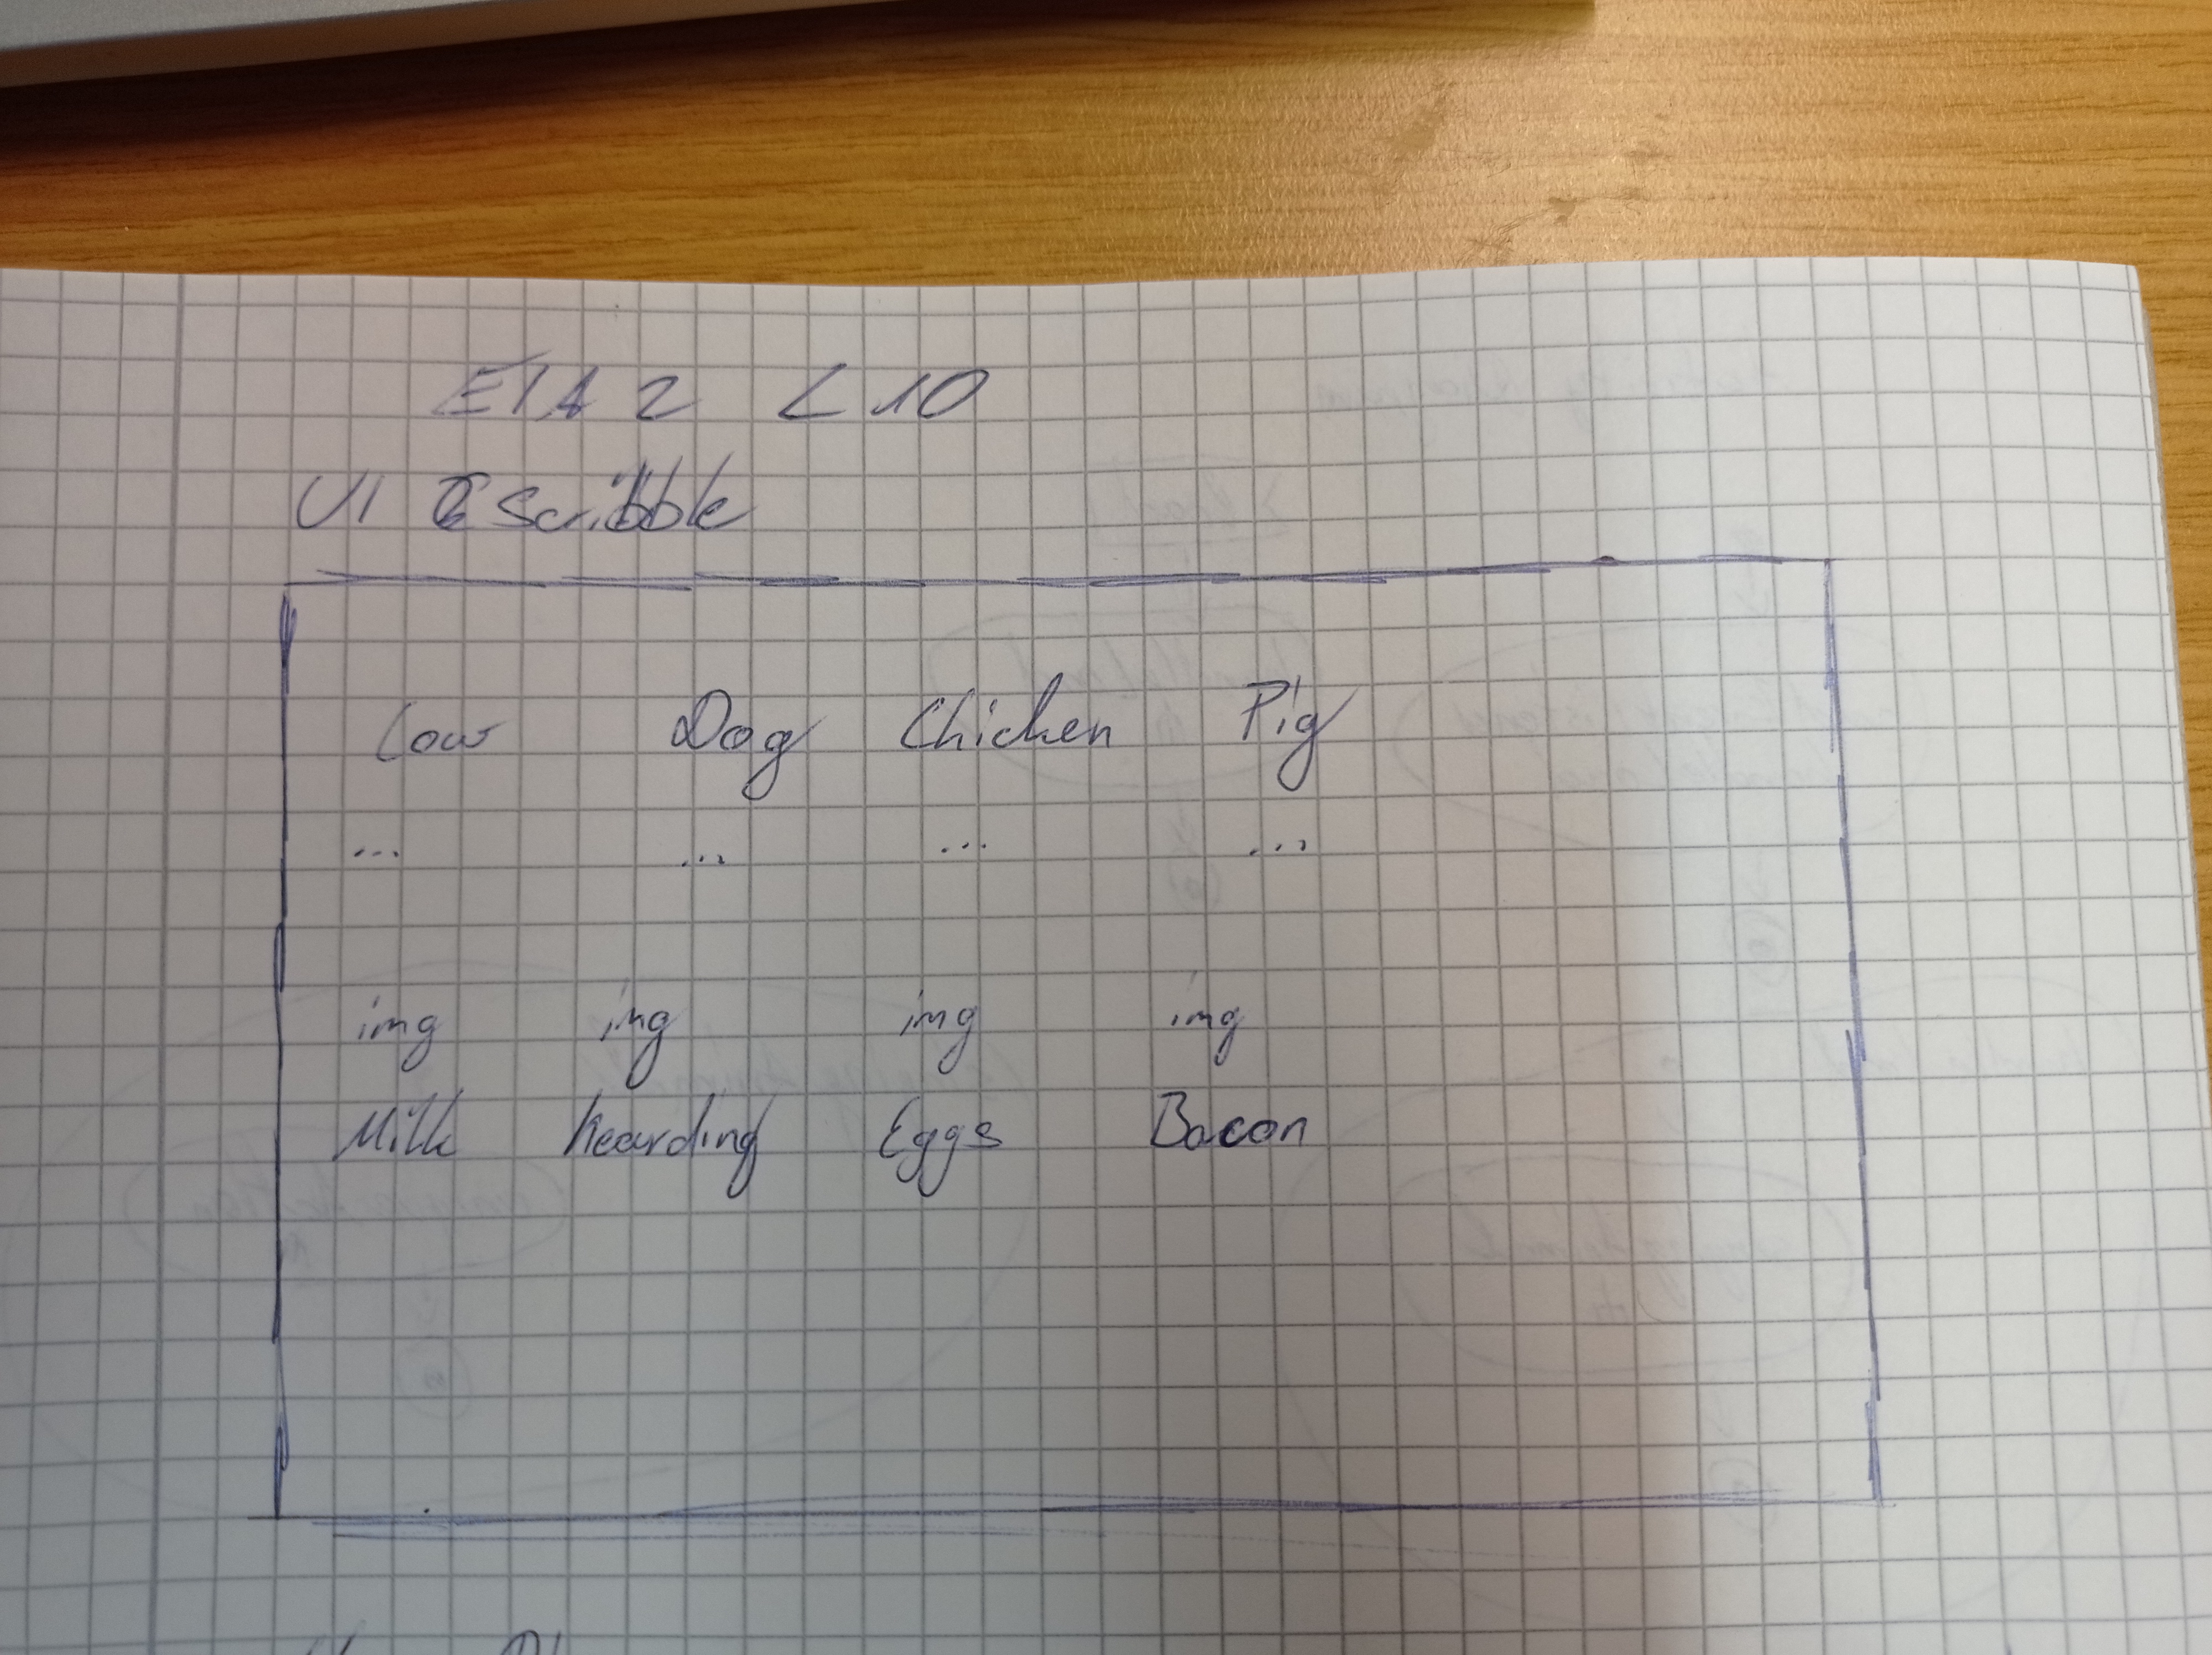 EIA 2 L10
UI Scribble
Cow Dog Chicken Pig
... ... ... ...
img img img img
Milk hearding Eggs Bacon